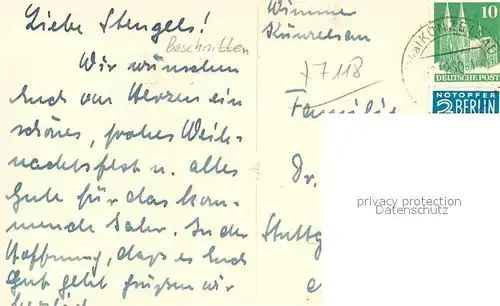 Liebe Stengels!
Beschnitten
Wir wünschen
Euch von Herzen ein
schönes, frohes Weih-
nachtsfest u. alles
Gute für das kom-
mende Jahr. In der
Hoffnung, dass es Euch
gut geht grüßen wir
Wimmer
Künzelsau
7118
Familie
Dr.
Stuttg
10
DEUTSCHE POST
NOTOPFER
2 BERLIN
privacy protection
Datenschutz